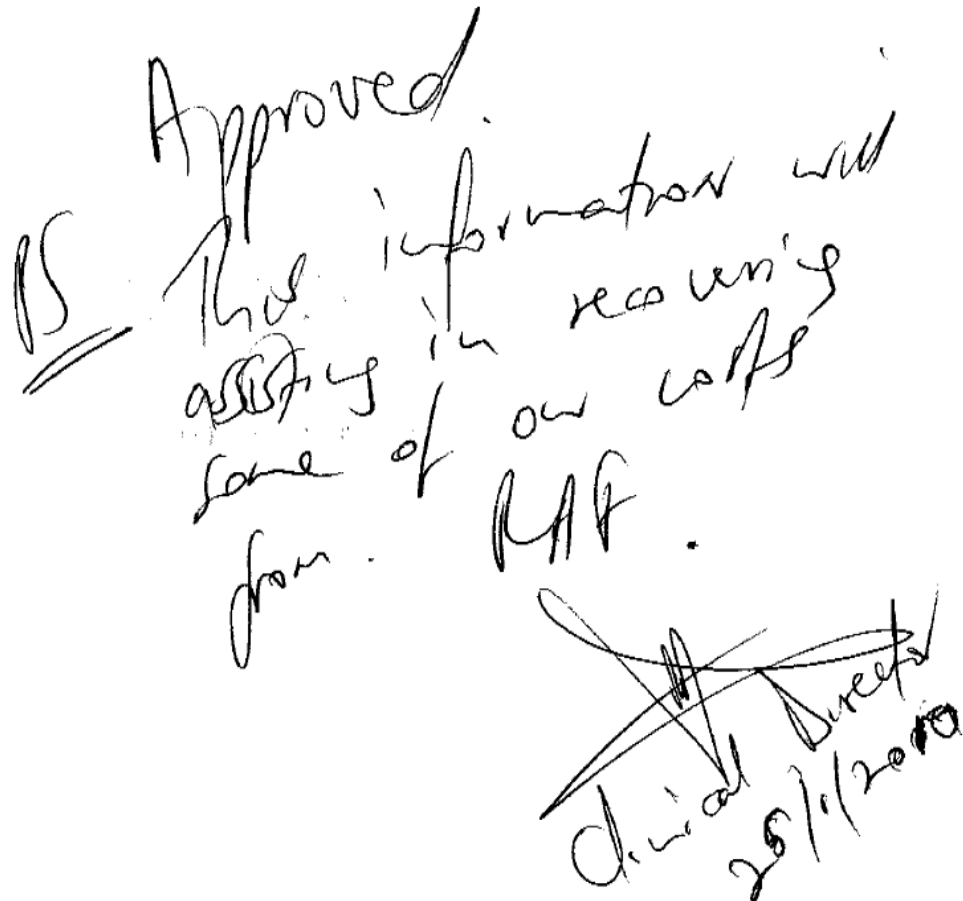 Approved.
PS. This information will
assisting in recovering
some of our costs
from. RAF.
Clinical Director
28/1/2010